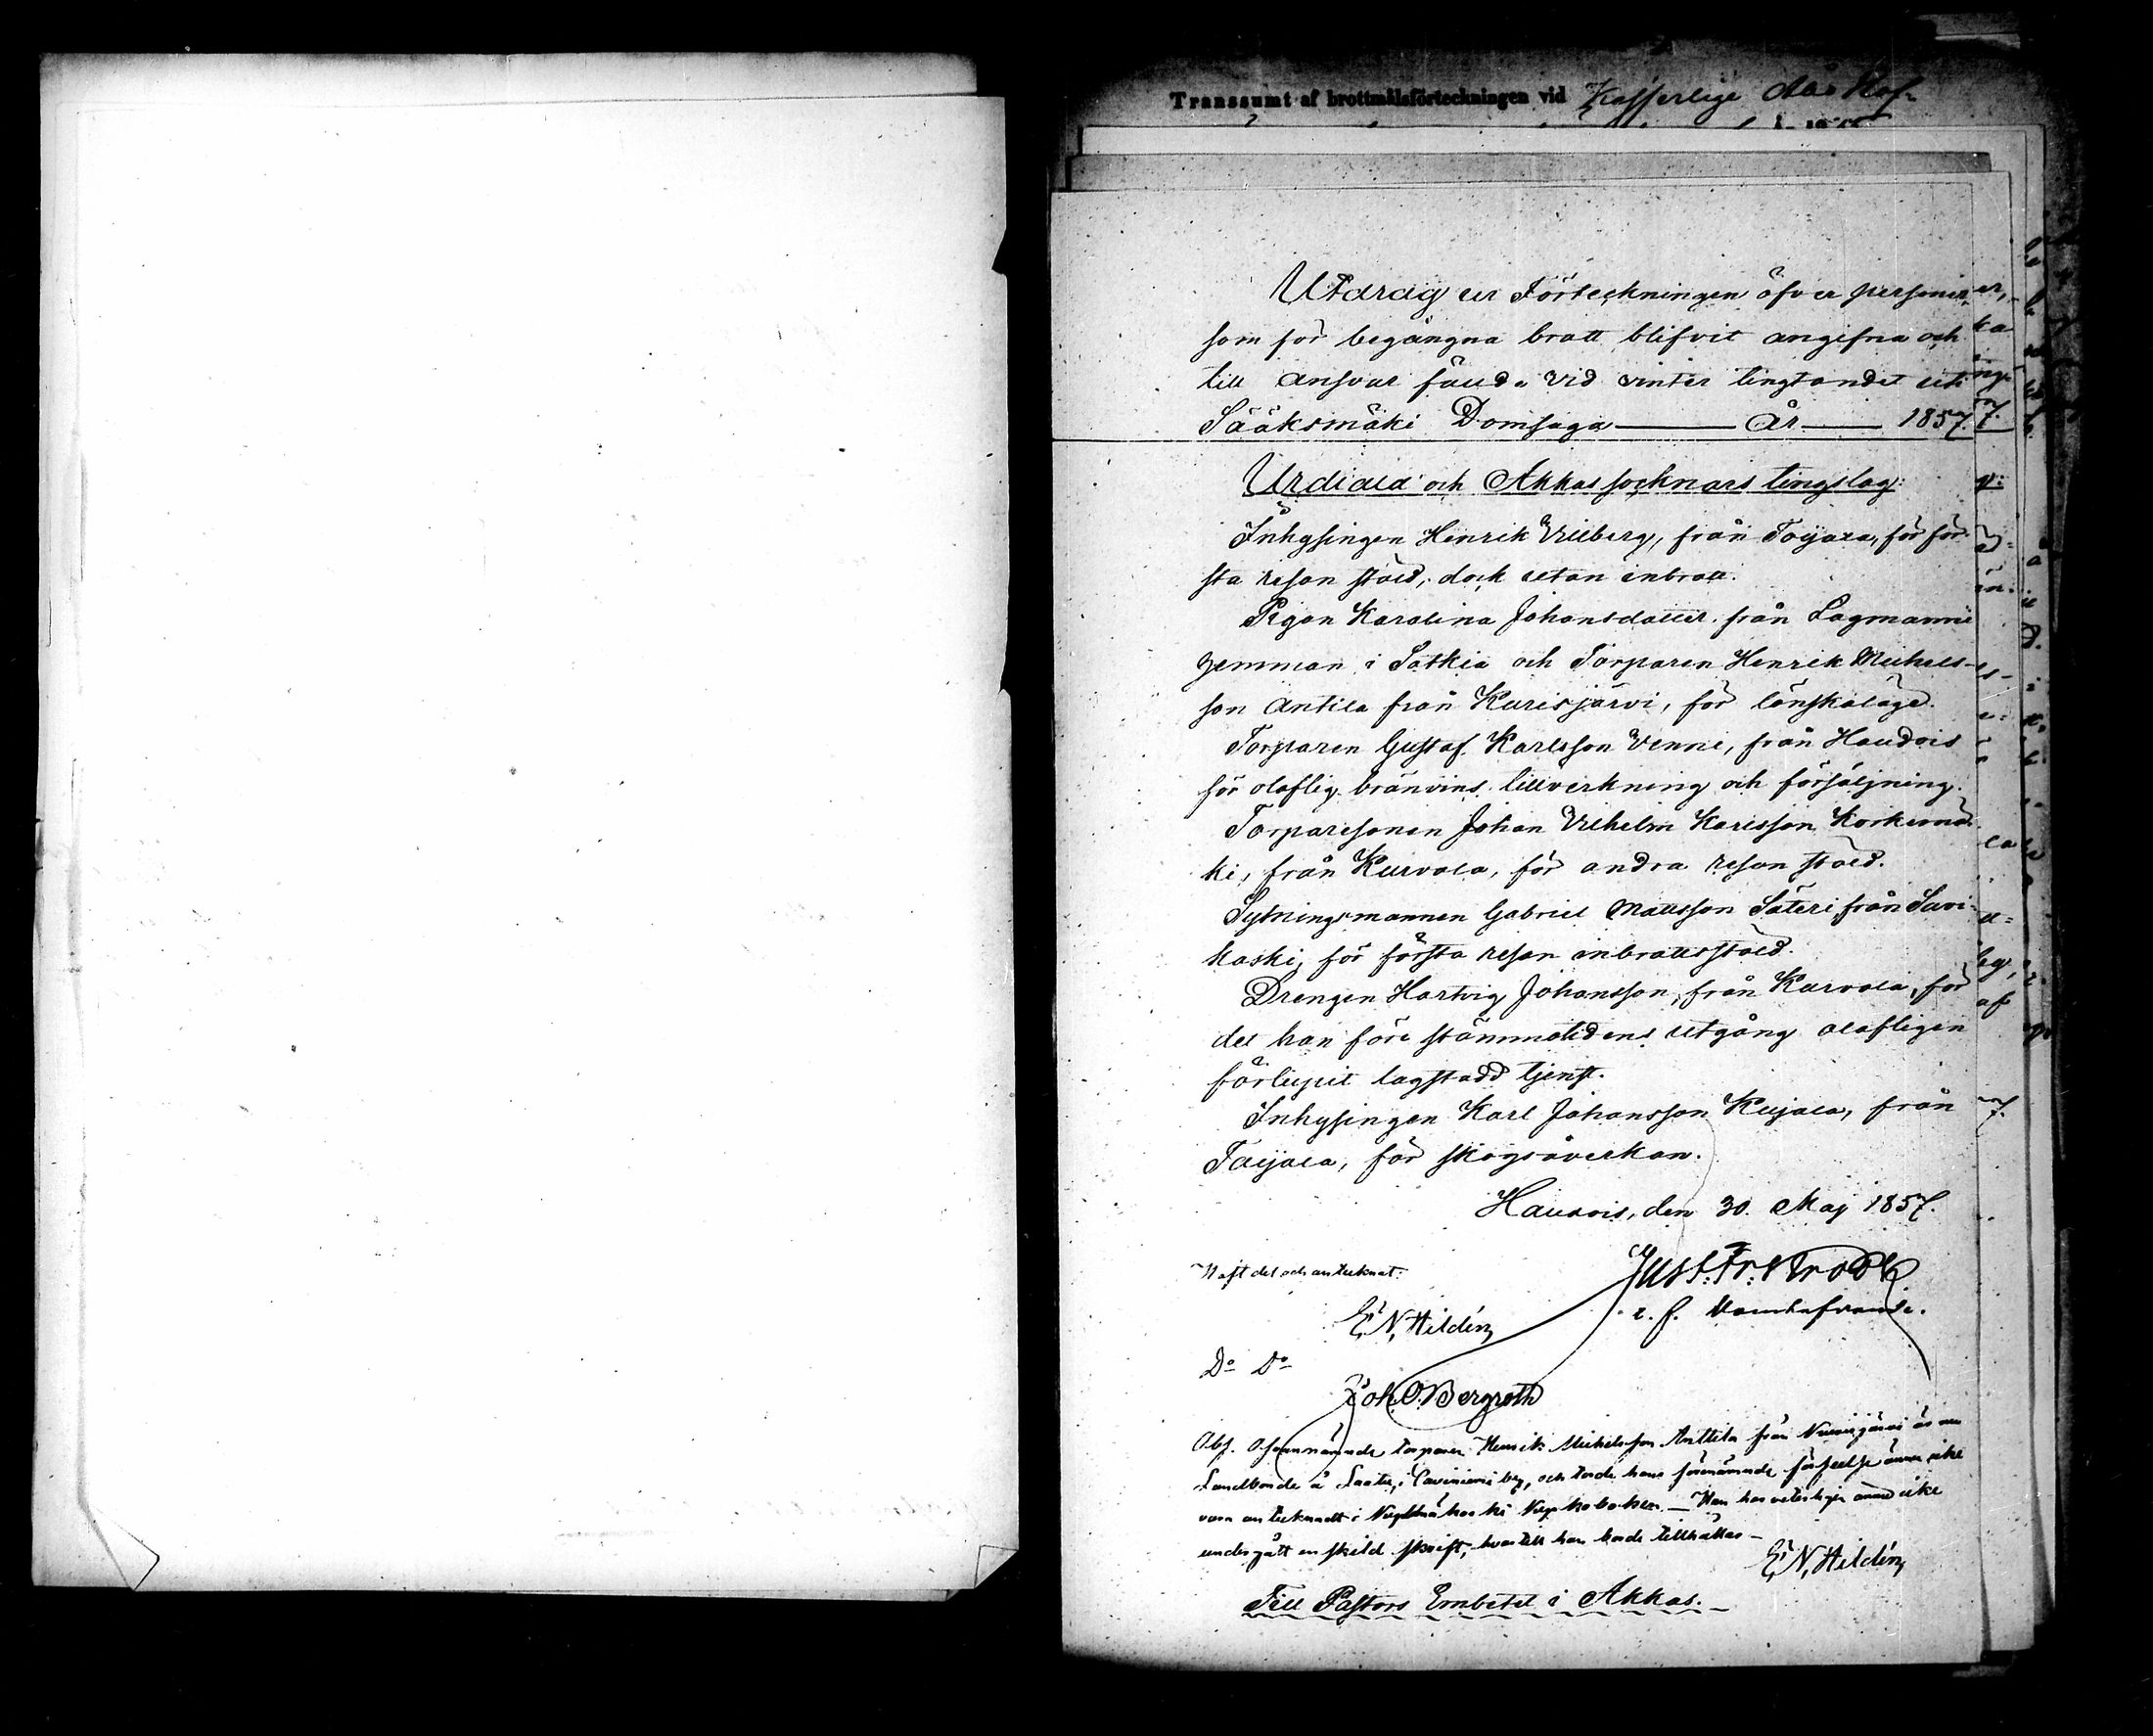 Transsumt af brottmålsförteckningen vid Kejserlige Åbo Hof-
Utdrag ur Förteckningen öfver personer,
som för begångna brott blifvit angifna och
till ansvar fäude vid vinter tingtandet uti
Sääksmäki Domsaga — År — 1857.
Urdiala och Akkas socknars tingslag:
Inhysingen Henrik Villberg, från Toijala, för för-
sta resan stöld, dock utan inbrott.
Pigan Karolina Johansdotter från Lagmanni
hemman i Sotkia och Torparen Henrik Michels-
son Antila från Kurisjärvi, för lönskaläge.
Torparen Gustaf Karlsson Venni, från Haudois
för olaflig bränvins tillverkning och försäljning.
Torparesonen Johan Vilhelm Karlsson Korkiamä-
ki, från Kurvola, för andra resan stöld.
Sytningsmannen Gabriel Mattsson Säteri från Savi-
koski, för första resan inbrottsstöld.
Drengen Hartvig Johansson, från Kurvola, för
det han före stämmotidens utgång olofligen
förlupit lagstadd tjenst.
Inhysingen Karl Johansson Kujala, från
Toijala, för skogsåverkan.
Haudois, den 30 Maj 1857.
Haft del och antecknat:
Just. Fr:
E. N. Hildén
e. f. Domhafvande.
Do Do
Joh. O. Bergroth
Obs. Ofvannämnde torparen Henrik Michelsson Anttila från är nu
Landbonde å i by, och torde hans förnämnde förseelse ännu icke
vara antecknadt i kyrkoboken. — Han har veterligen ännu icke
undergått enskild skrift, hvartill han borde tillhållas —
E. N. Hildén
Till Pastors Embetet i Akkas. —